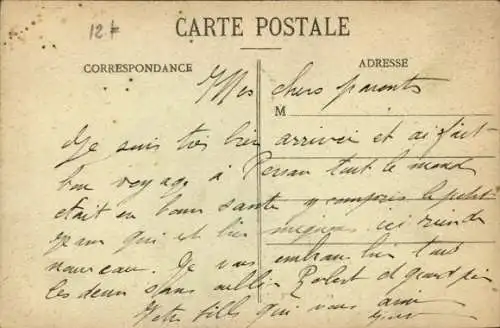 12 f
CARTE POSTALE
CORRESPONDANCE
ADRESSE
Mes chers parents
M
Je suis très bien arrivée et ai fait
bon voyage à Persan tout le monde
était en bonne santé y compris le petit
Jean qui est bien mignon ici rien de
nouveau. Je vous embrasse bien tous
les deux sans oublier Robert et grand père
Votre fille qui vous aime